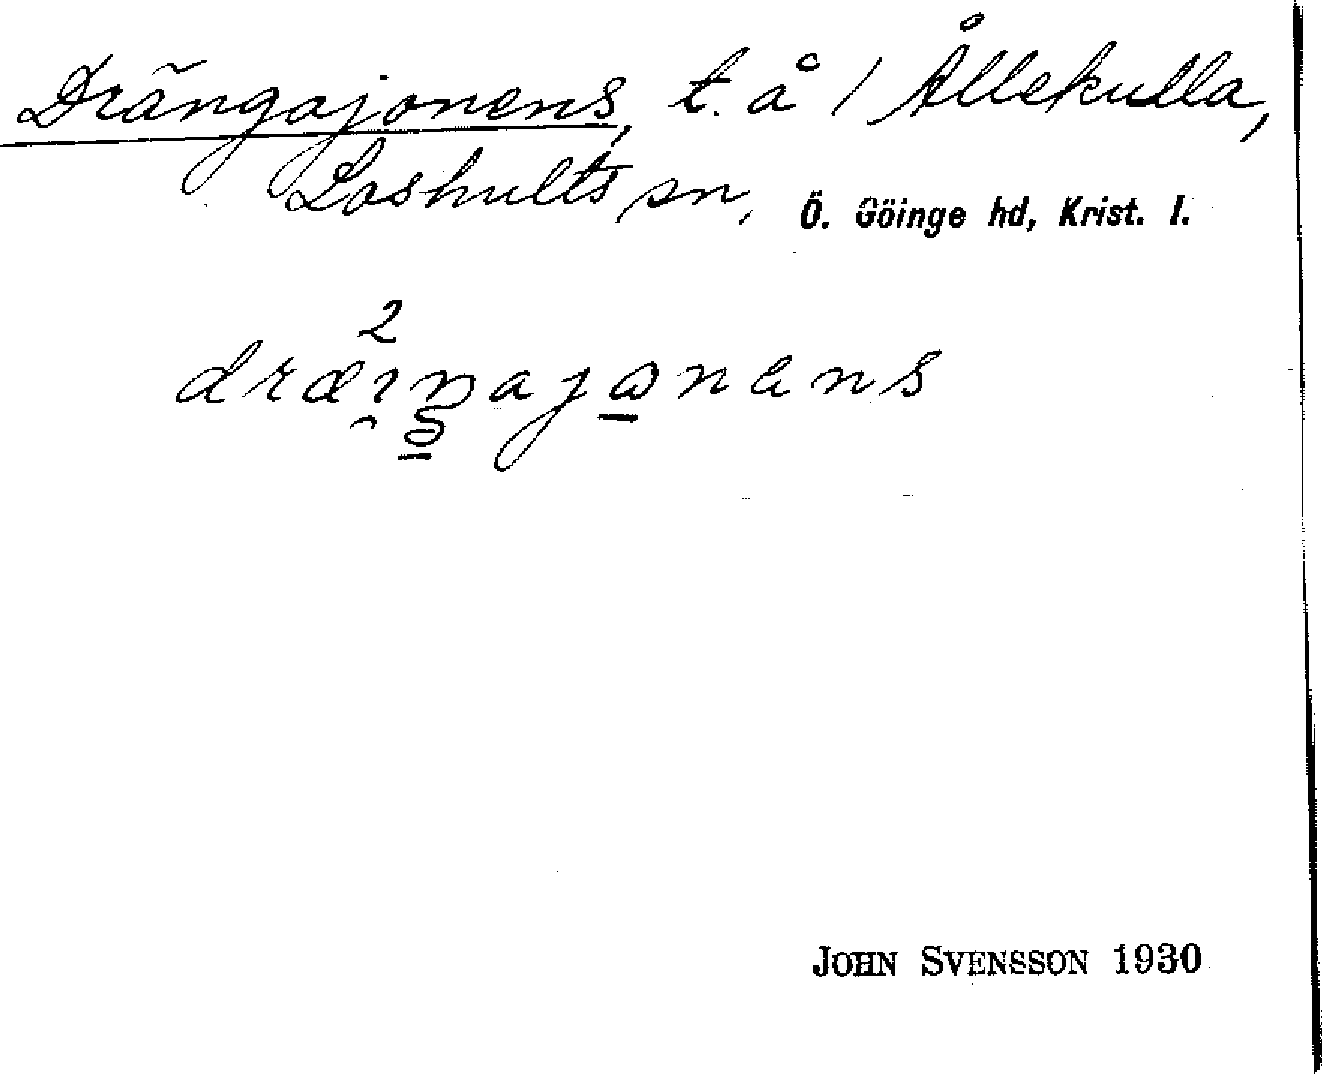 Drängajonens, t. å / Ållekulla,
Loshults sn, Ö. Göinge hd, Krist. l.
JOHN SVENSSON 1930